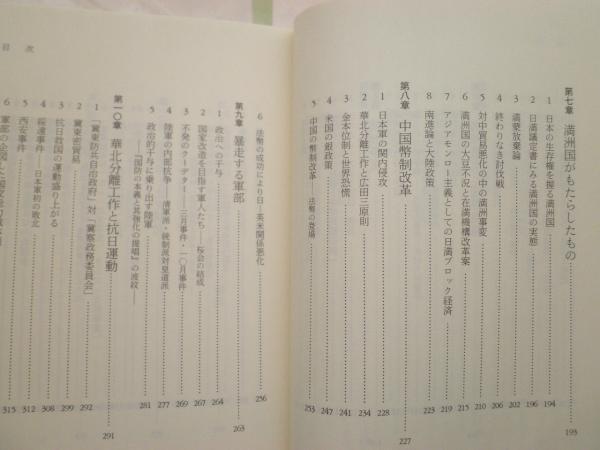 第七章　満洲国がもたらしたもの 193
1　日本の生存権を握る満洲国 194
2　日満議定書にみる満洲国の実態 196
3　満蒙放棄論 202
4　終わりなき討伐戦 206
5　対中貿易悪化の中の満洲事変 210
6　満洲国の大豆不況と在満機構改革案 215
7　アジアモンロー主義としての日満ブロック経済 219
8　南進論と大陸政策 223
第八章　中国幣制改革 227
1　日本軍の関内侵攻 228
2　華北分離工作と広田三原則 234
3　金本位制と世界恐慌 241
4　米国の銀政策 247
5　中国の幣制改革――法幣の登場 253
目次
6　法幣の成功により日・英米関係悪化 256
第九章　暴走する軍部 263
1　政治への干与 264
2　国家改造を目指す軍人たち――桜会の結成 267
3　不発のクーデター――三月事件・一〇月事件 269
4　陸軍の内部抗争――清軍派・統制派対皇道派 277
5　政治的干与に乗り出す陸軍 281
――『国防の本義と其強化の提唱』の波紋
第一〇章　華北分離工作と抗日運動 291
1　「冀東防共自治政府」対「冀察政務委員会」 292
2　冀東密貿易 299
3　抗日救国の運動盛り上がる 308
4　綏遠事件――日本軍初の敗北 312
5　西安事件 315
6　軍部の企図した国